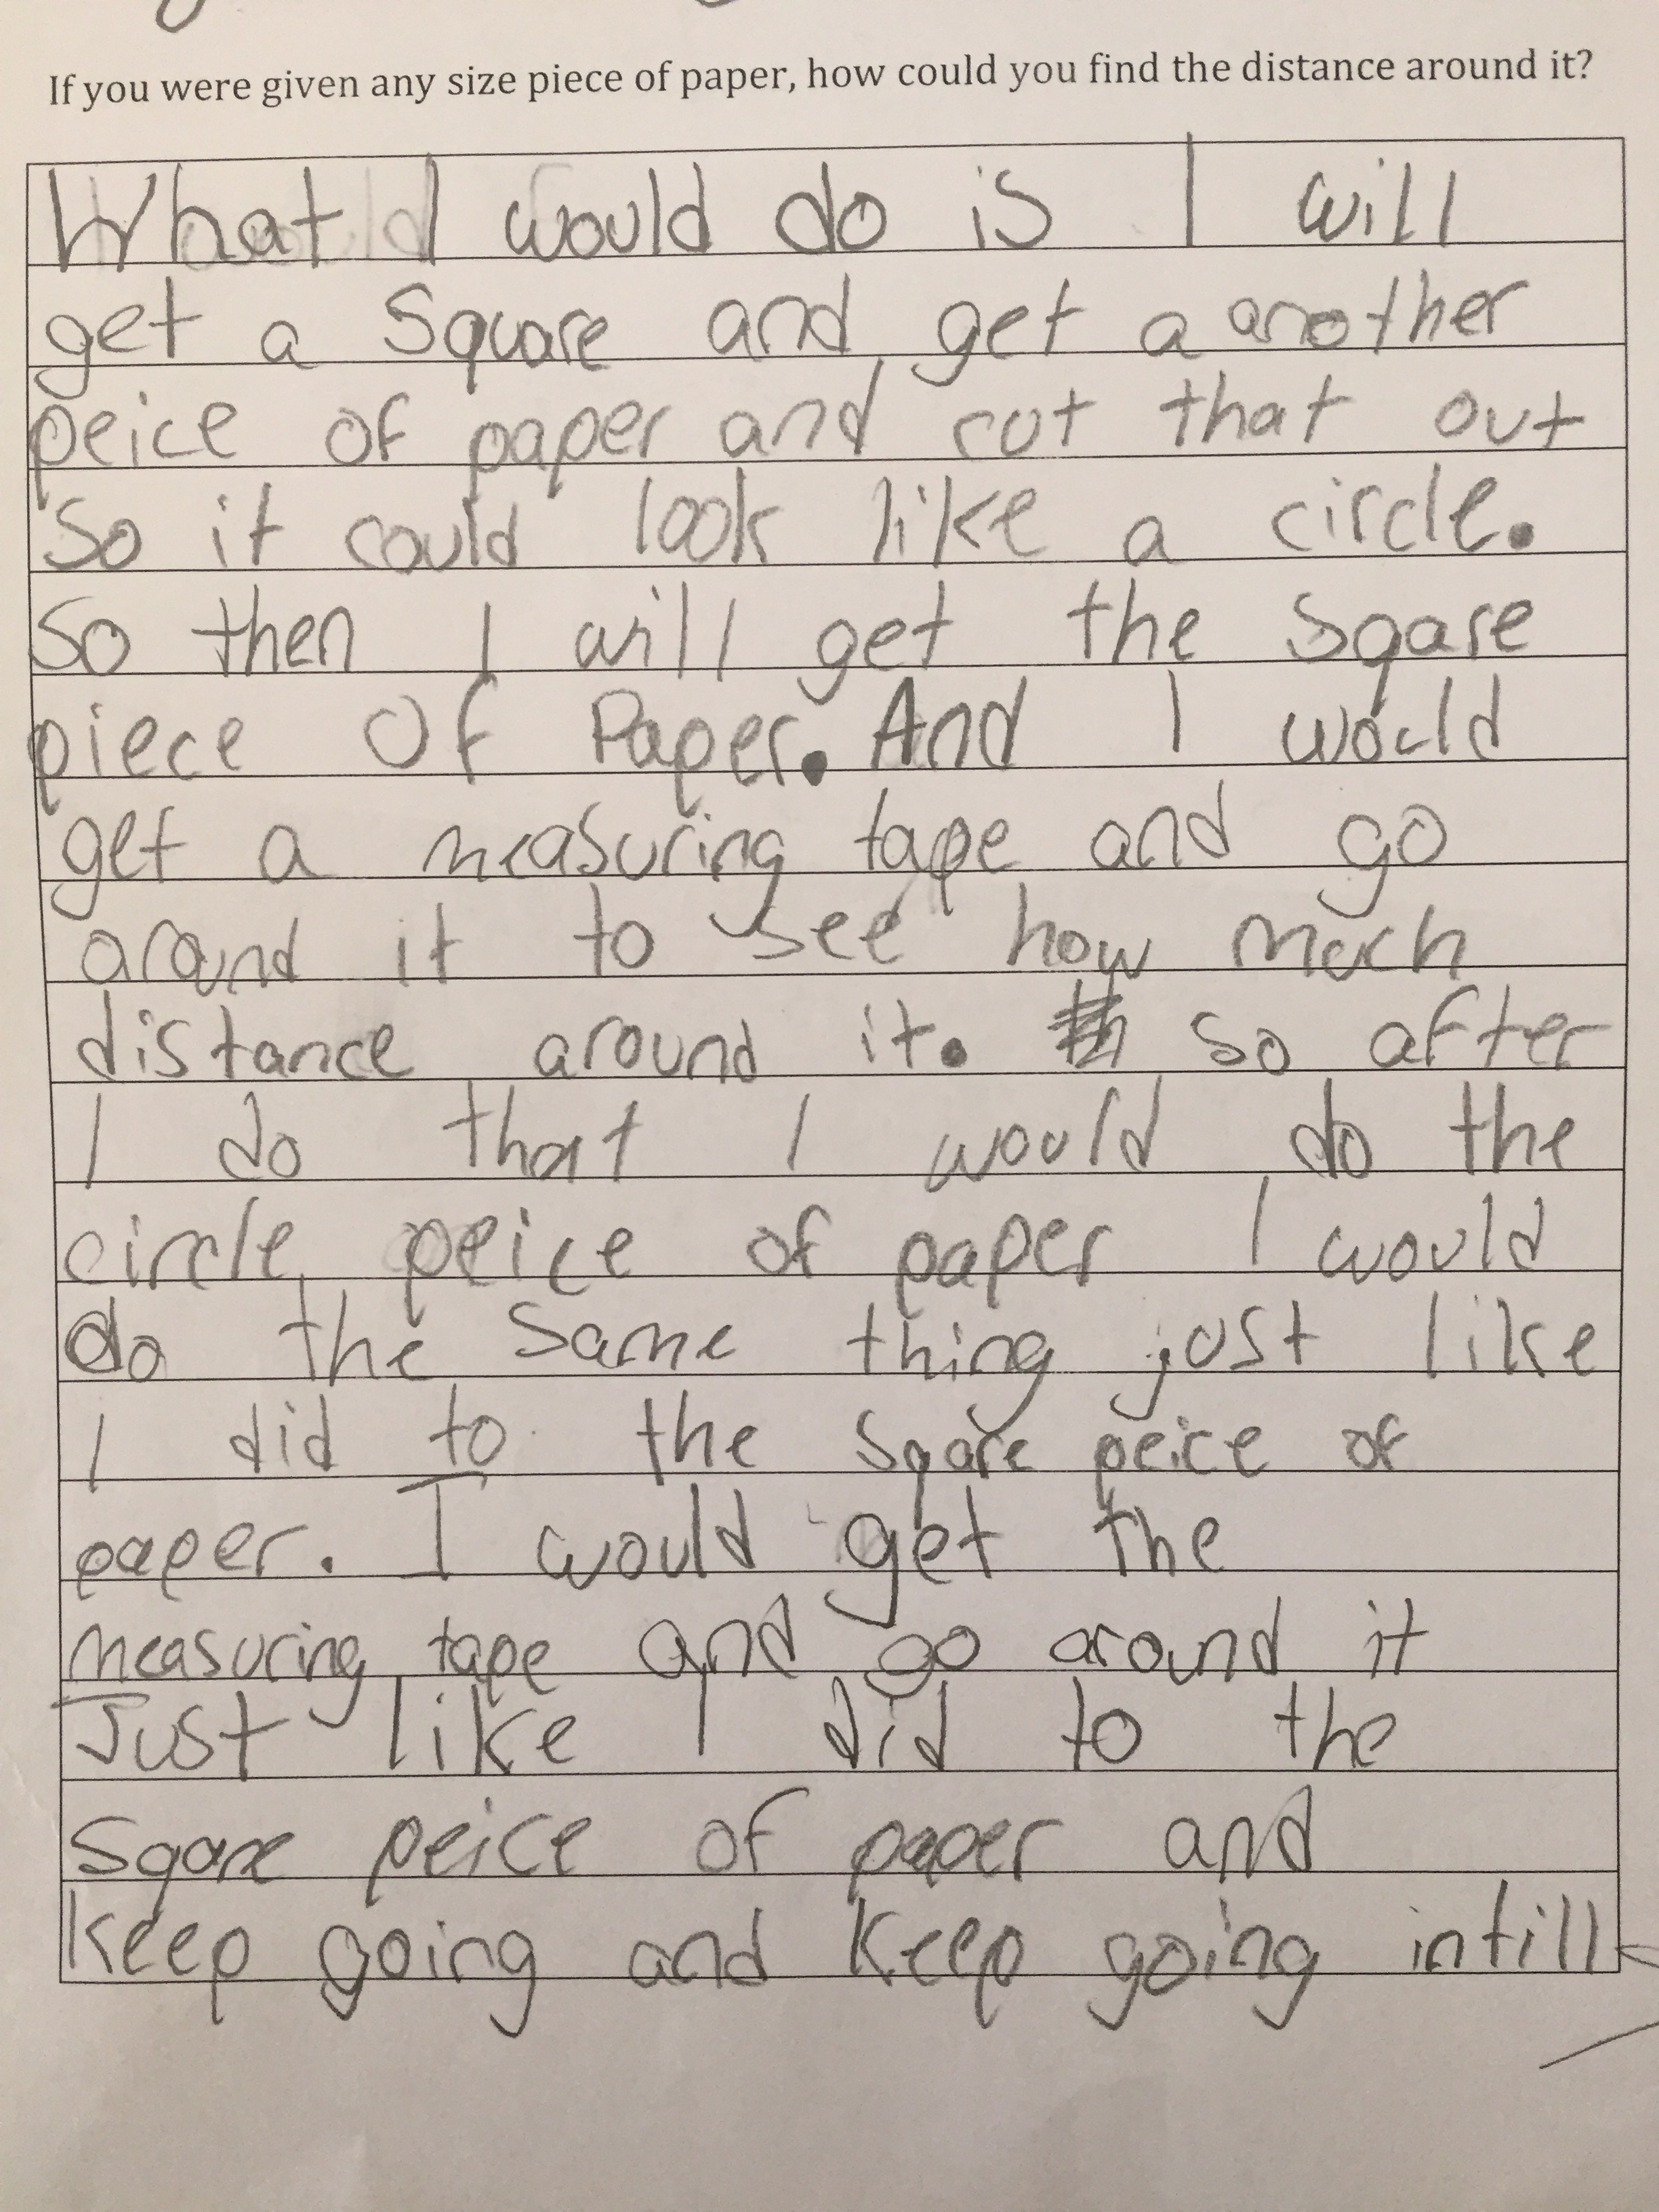 If you were given any size piece of paper, how could you find the distance around it?
What I would do is I will
get a Square and get a another
peice of paper and cut that out
So it could look like a circle.
So then I will get the Sqare
piece Of Paper. And I would
get a measuring tape and go
around it to see how much
distance around it. so after
I do that I would do the
circle peice of paper I would
do the Same thing just like
I did to the Sqare peice of
paper. I would get the
measuring tape and go around it
Just like I did to the
Sqare peice of paper and
keep going and keep going intill